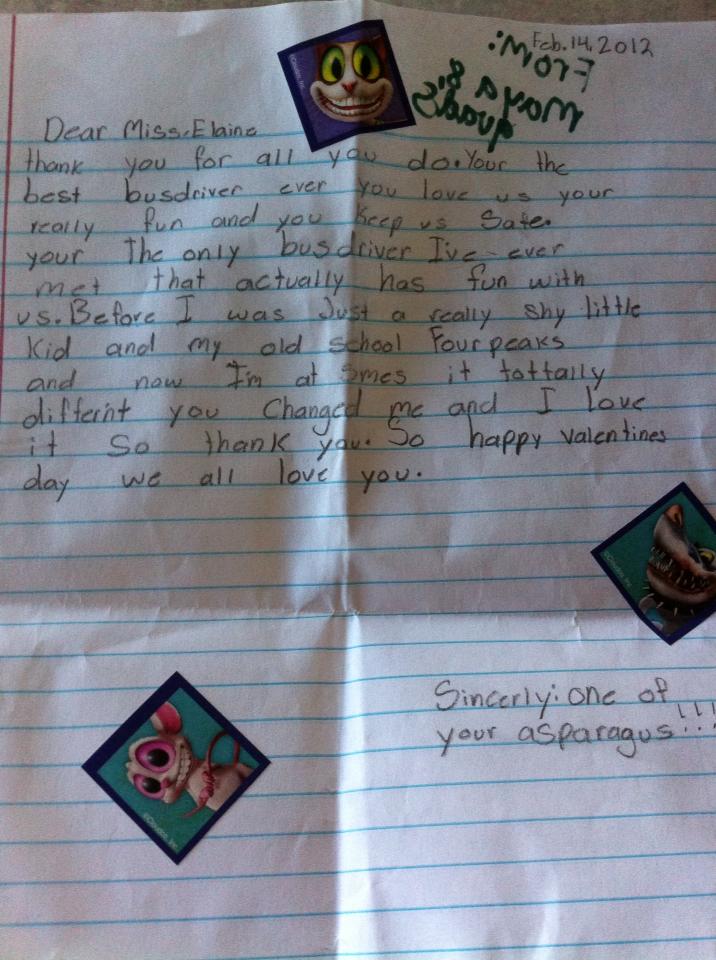 Feb.14.2012
From:
Dear Miss.Elaine
thank you for all you do.Your the
best busdriver ever you love us your
really fun and you Keep us Safe.
your The only busdriver I've ever
met that actually has fun with
us.Before I was Just a really shy little
Kid and my old school Fourpeaks
and now I'm at Smes it tottally
differint you Changed me and I love
it So thank you. So happy valentines
day we all love you.
Sincerly: one of
your asparagus!!!